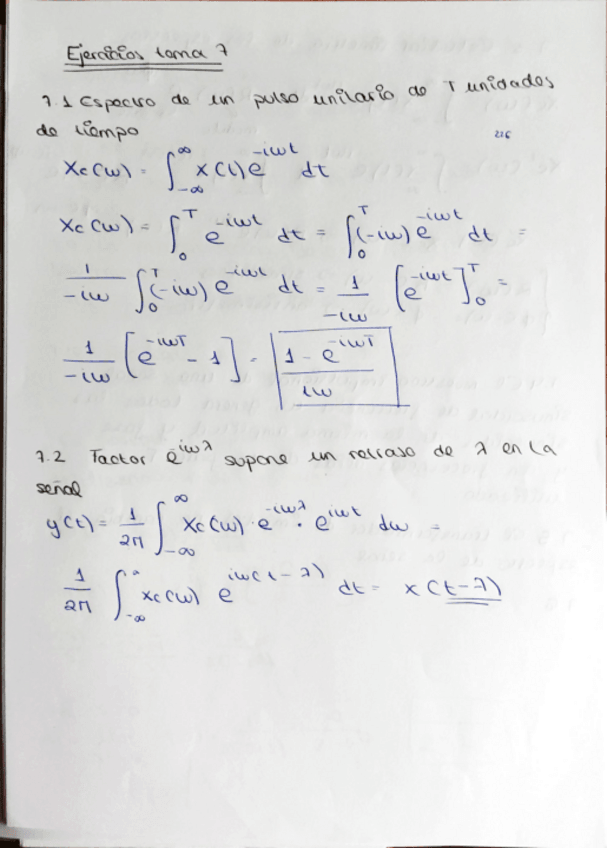 Ejercicios tema 7
7.1 Espectro de un pulso unitario de T unidades
de tiempo
226
Xc(ω) = ∫_{-∞}^{∞} x(t) e^{-iωt} dt
Xc(ω) = ∫_0^T e^{-iωt} dt = ∫_0^T (-iω) e^{-iωt} dt =
1/(-iω) ∫_0^T (-iω) e^{-iωt} dt = 1/(-iω) [e^{-iωt}]_0^T =
1/(-iω) [e^{-iωT} - 1] = (1 - e^{-iωT})/(iω)
7.2 Factor e^{iωλ} supone un retraso de λ en la
señal
y(t) = 1/(2π) ∫_{-∞}^{∞} Xc(ω) · e^{-iωλ} · e^{iωt} dω =
1/(2π) ∫_{-∞}^{∞} Xc(ω) e^{iω(t-λ)} dt = x(t-λ)